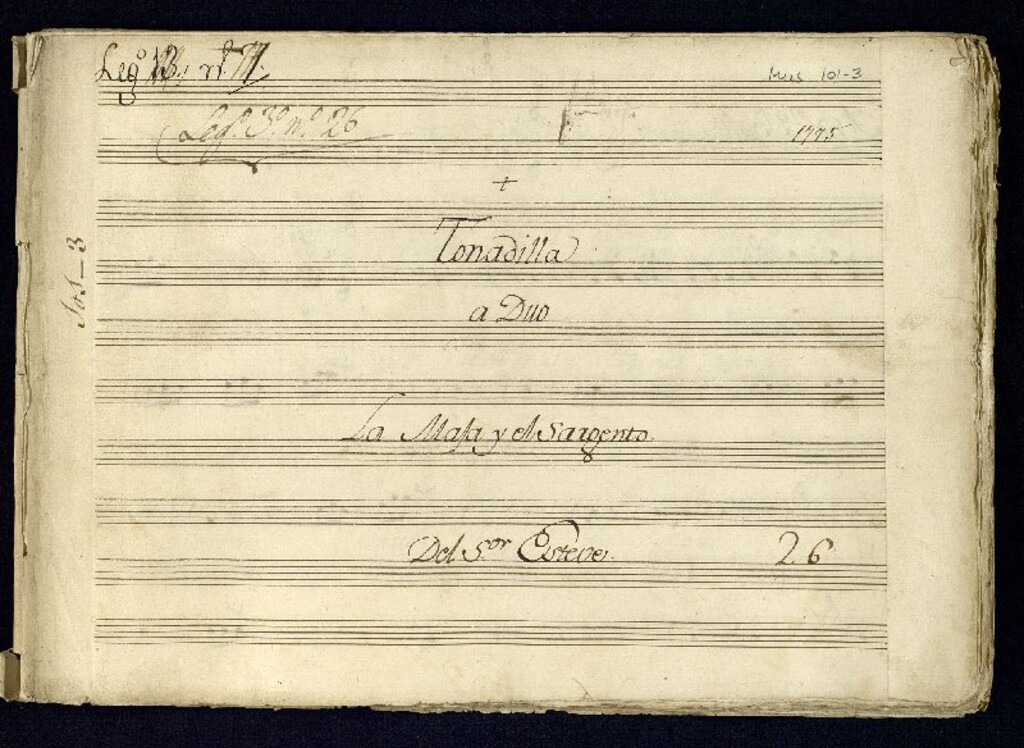 Leg.º 3.º n.º 26
Mus 101-3
1775
+
Tonadilla
a Duo
La Maja y el Sargento.
Del S.or Esteve.
26
101-3